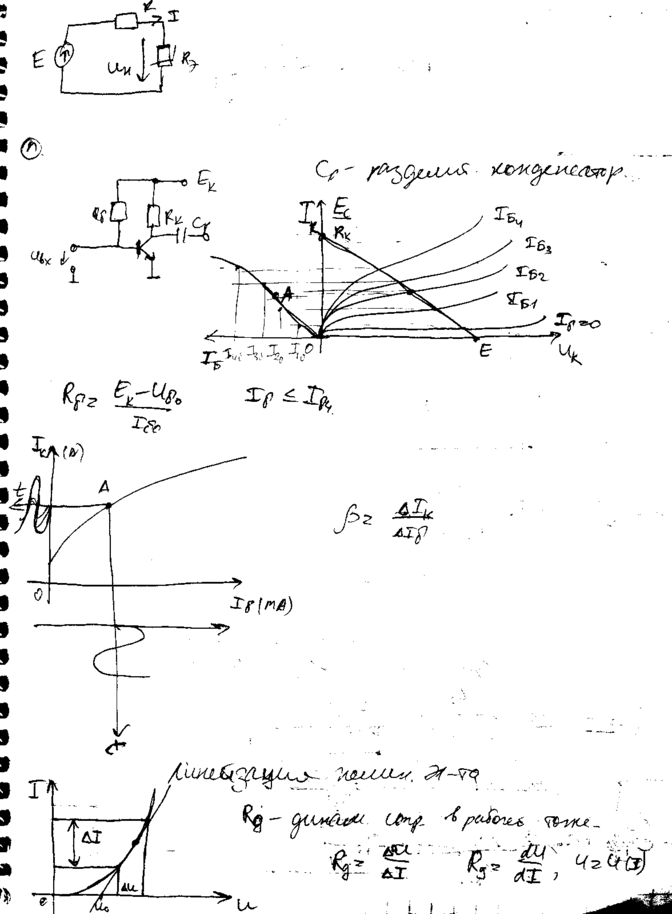 R I
E
Uн
Rэ
n
Eк
Rб Rк Cр
Uвх
Cр - раздели. конденсатор.
Iк Eс
Rк
IБ4
IБ3
IБ2
IБ1
Iб=0
A
IБ I4б I3б I2б I1б 0
E
Uк
Rб = Eк - Uб0
Iб0
Iб ≤ Iб4
Iк (A)
A
t
β = ΔIк
ΔIб
0
Iб (mA)
t
Линеаризация нелин. эл-та
I
Rд - динам сопр. в рабочей точке.
ΔI
Rд = ΔU
ΔI
Rд = dU
dI , U = U(I)
ΔU
0
U0
U